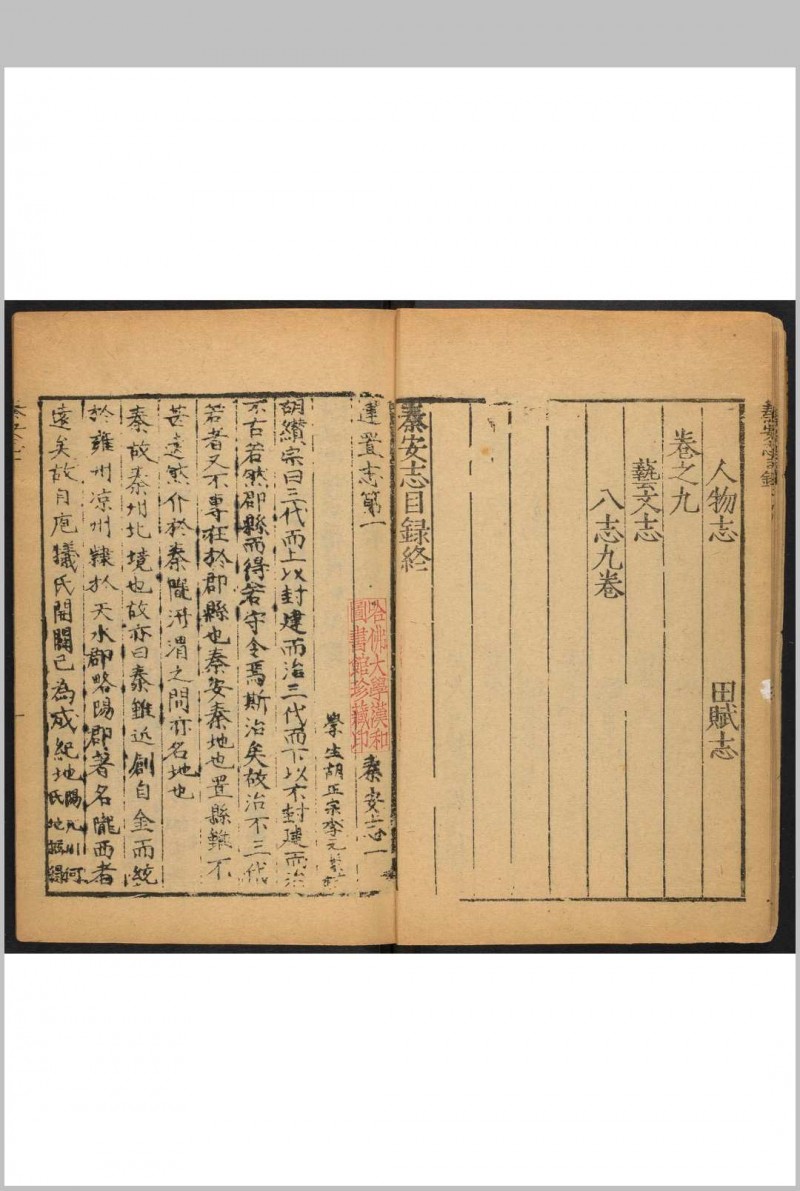 人物志 田賦志
卷之九
藝文志
八志九卷
秦安志目録終
建置志第一 秦安志一
學生胡正宗李元
胡纘宗曰三代而上以封建而治三代而下以不封建而治
不古若然郡縣而得若守令焉斯治矣故治不三代
若者又不專在於郡縣也秦安秦地也置縣雖不
甚遠然介於秦隴汧渭之間亦名地也
秦故秦州北境也故亦曰秦雖近創自金而統
於雍州凉州隸於天水郡略陽郡著名隴西者
遠矣故自庖犧氏開闢已為成紀地
哈佛大學漢和
圖書館珍藏印